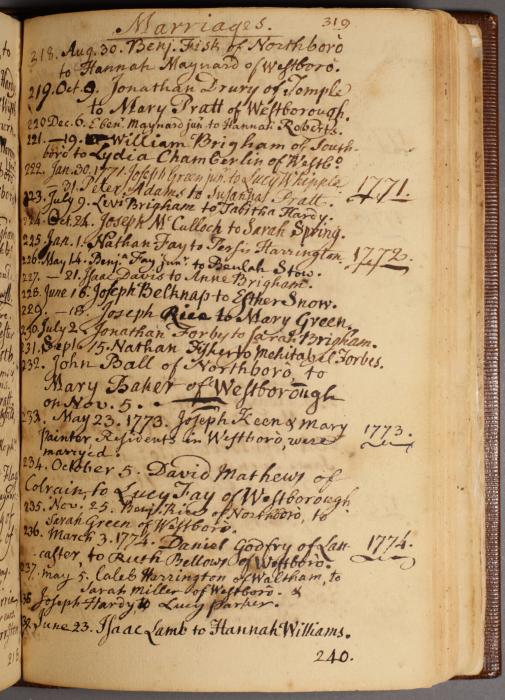 Marriages. 319
218. Aug. 30. Benj. Fisk of Northboro
to Hannah Maynard of Westboro.
219. Oct. 9. Jonathan Drury of Temple
to Mary Pratt of Westborough.
220 Dec. 6. Eben. Maynard jun. to Hannah Roberts.
221. —19. William Brigham of South-
boro to Lydia Chamberlin of Westbo.
222. Jan. 30. 1771. Joseph Green jun. to Lucy Whipple
— 31. Peter Adams to Susanna Pratt. 1771.
223. July 9. Levi Brigham to Tabitha Hardy.
224. Oct. 24. Joseph McCulloch to Sarah Spring.
225. Jan. 1. Nathan Fay to Persis Harrington.
226. May 14. Benja. Fay jun. to Beulah Stow. 1772.
227. — 21. Isaac Davis to Anne Brigham.
228. June 16. Joseph Belknap to Esther Snow.
229. — 18. Joseph Rice to Mary Green.
230. July 2. Jonathan Forby to Sarah Brigham.
231. Sept. 15. Nathan Fisher to Mehitabel Forbes.
232. John Ball of Northboro, to
Mary Baker of Westborough
on Nov. 5.
233. May 23. 1773. Joseph Keen & Mary
Painter Residents in Westboro, were 1773.
marryed.
234. October 5. David Mathews of
Colrain, to Lucy Fay of Westborough
235. Nov. 25. Benj. Rice of Northboro, to
Sarah Green of Westboro.
236. March 3. 1774. Daniel Godfry of Lan-
caster, to Ruth Bellows of Westboro. 1774.
237. May 5. Caleb Harrington of Waltham, to
Sarah Miller of Westboro. &
38 Joseph Hardy to Lucy Parker.
39. June 23. Isaac Lamb to Hannah Williams.
240.